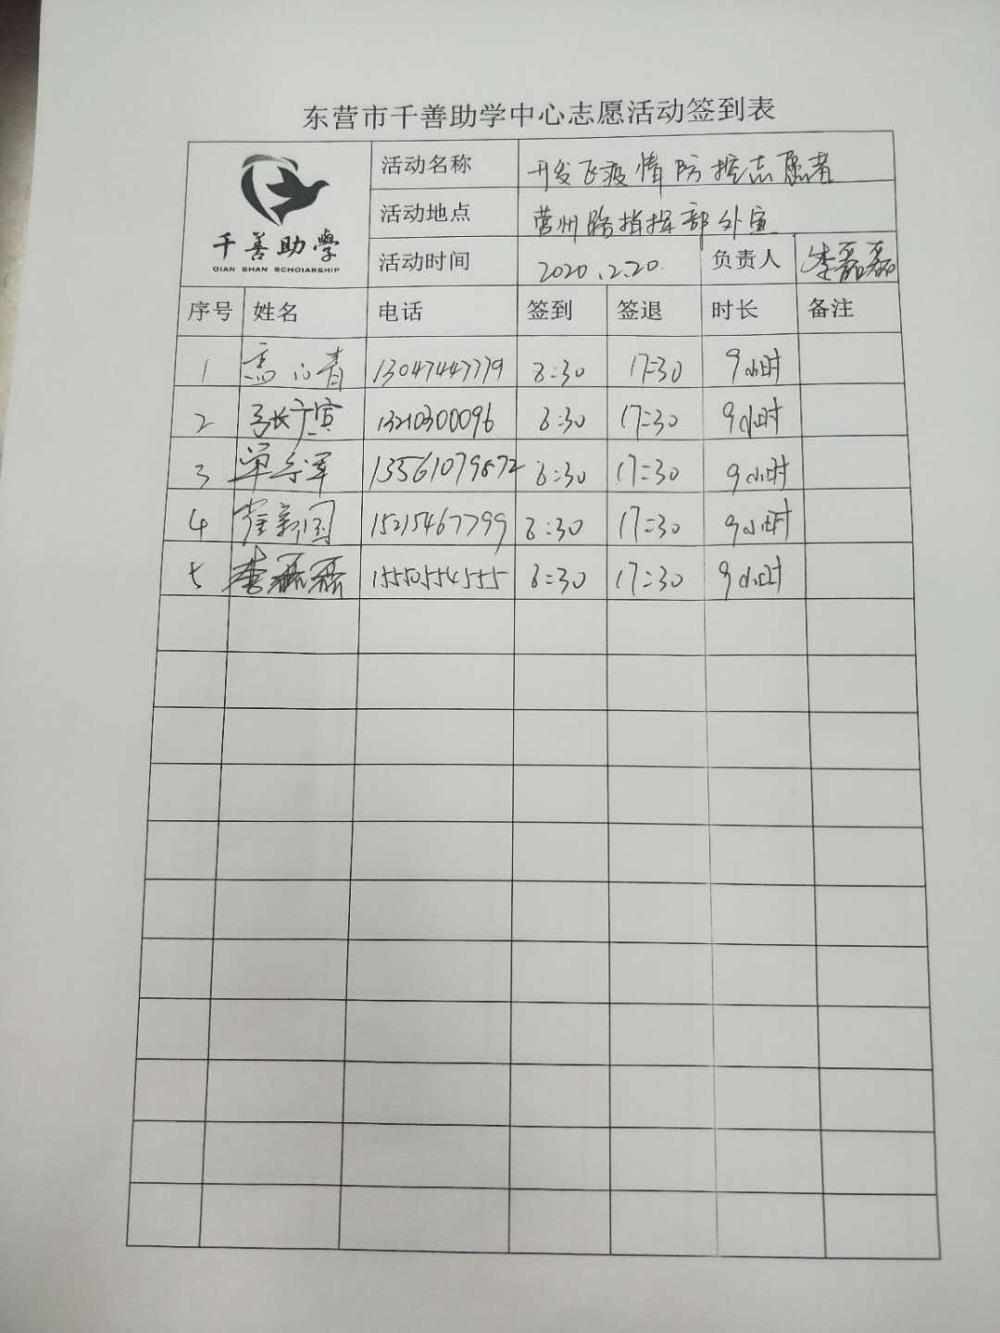 东营市千善助学中心志愿活动签到表
千善助學
QIAN SHAN SCHOLARSHIP
活动名称 开发区疫情防控志愿者
活动地点 营州路指挥部外宣
活动时间 2020.2.20. 负责人 李磊磊
序号 姓名 电话 签到 签退 时长 备注
1 13047447779 8:30 17:30 9小时
2 张广寅 13210300096 8:30 17:30 9小时
3 单 军 13561079872 8:30 17:30 9小时
4 崔新国 15215467799 8:30 17:30 9小时
5 李磊磊 15550554555 8:30 17:30 9小时